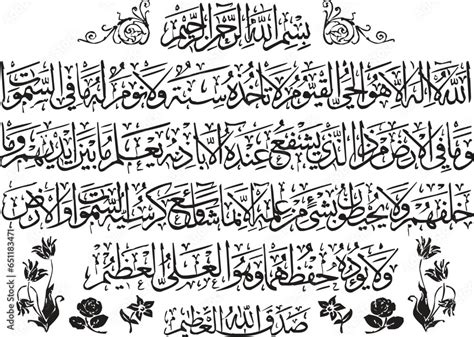 بسم الله الرحمن الرحيم
الله لا إله إلا هو الحي القيوم لا تأخذه سنة ولا نوم له ما في السموات
وما في الأرض من ذا الذي يشفع عنده إلا بإذنه يعلم ما بين أيديهم وما
خلفهم ولا يحيطون بشيء من علمه إلا بما شاء وسع كرسيه السموات والأرض
ولا يؤده حفظهما وهو العلي العظيم
صدق الله العظيم
Adobe Stock | #651183471